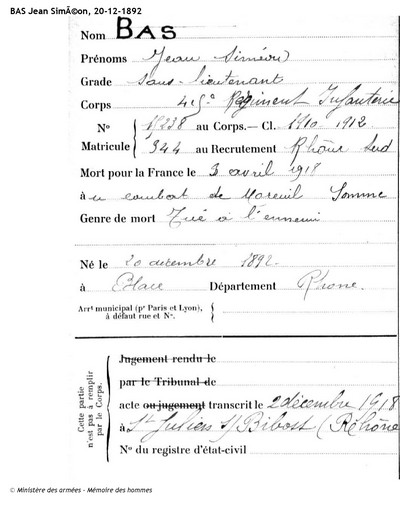 BAS Jean SimÃ©on, 20-12-1892
Nom BAS
Prénoms Jean Siméon
Grade sous-lieutenant
Corps 415e Régiment Infanterie
No 19238 au Corps. — Cl. 1910 1912
Matricule 344 au Recrutement Rhône Sud
Mort pour la France le 3 avril 1918
à u combat de Moreuil Somme
Genre de mort Tué à l'ennemi
Né le 20 décembre 1892
à Blacé Département Rhône.
Arrt municipal (pr Paris et Lyon),
à défaut rue et No.
Cette partie
n'est pas à remplir
par le Corps.
Jugement rendu le
par le Tribunal de
acte ou jugement transcrit le 2 décembre 1918
à St Julien s/ Bibost (Rhône
No du registre d'état-civil
© Ministère des armées - Mémoire des hommes